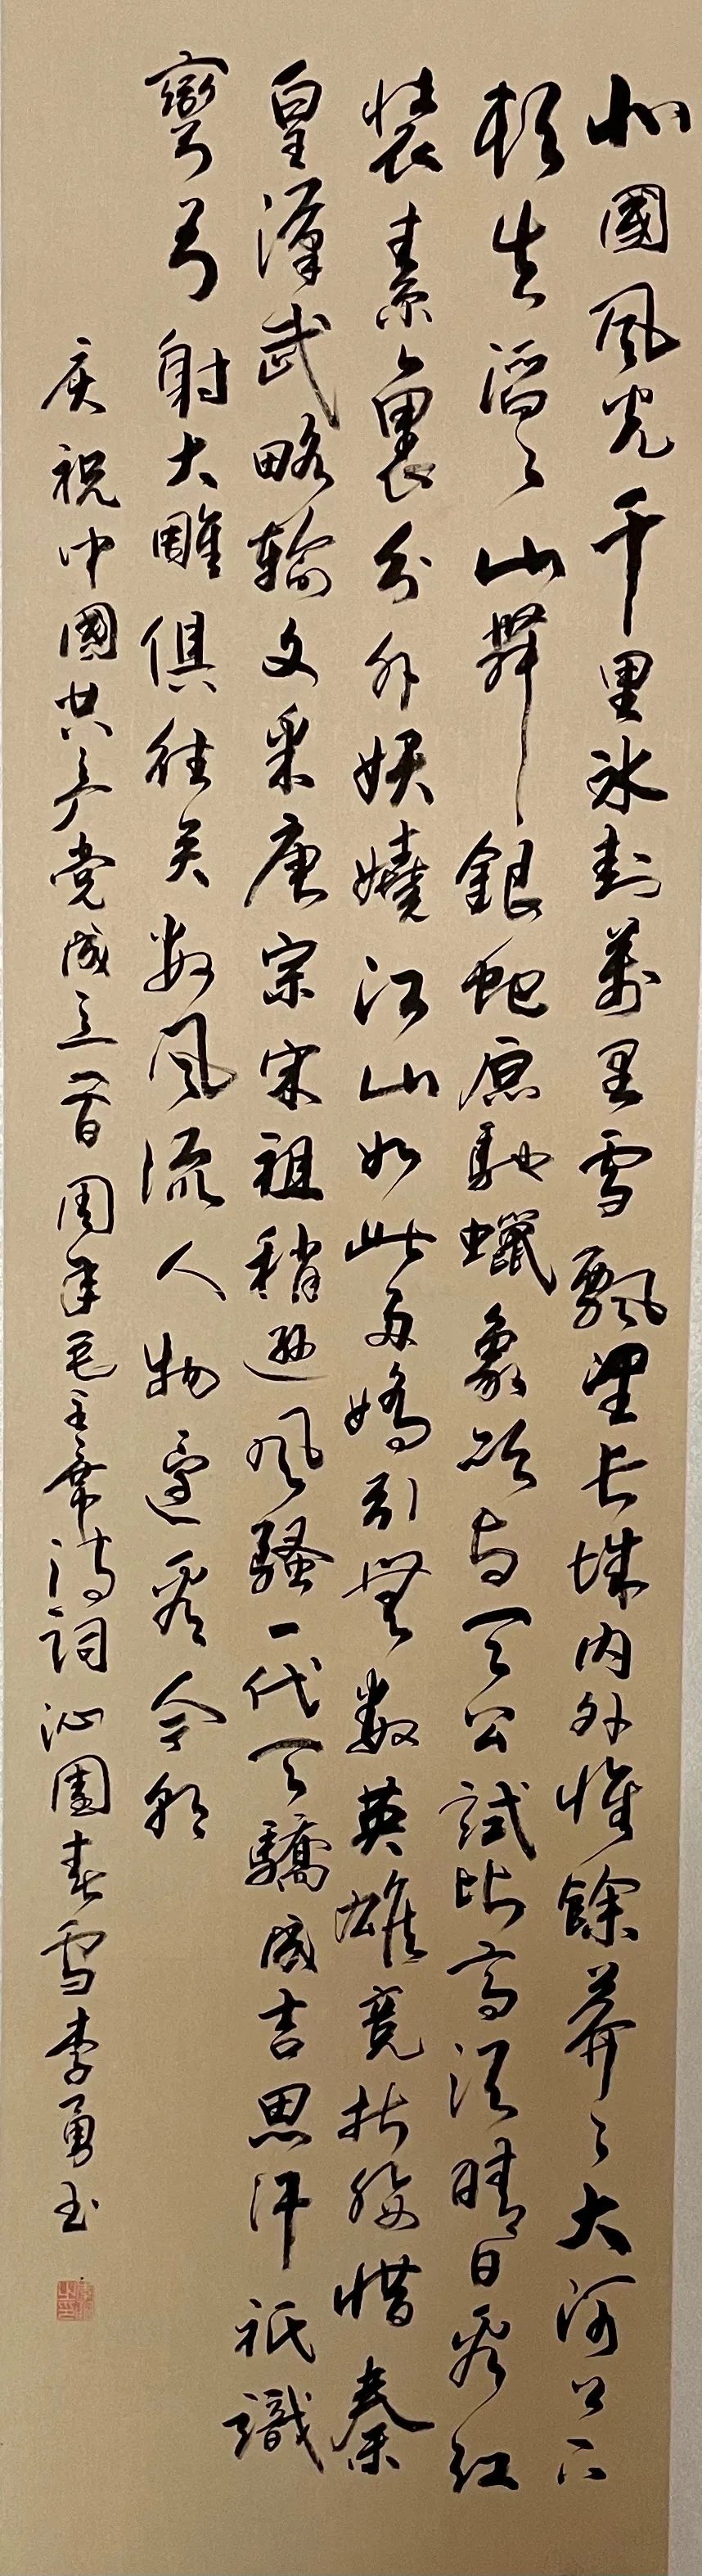 北國風光千里冰封萬里雪飄望长城内外惟餘莽々大河上下
頓失滔々山舞銀蛇原馳蠟象欲与天公試比高須晴日看红
裝素裹分外妖嬈江山如此多嬌引無數英雄竞折腰惜秦
皇漢武略輸文采唐宗宋祖稍遜風騷一代天驕成吉思汗祇識
彎弓射大雕俱往矣数風流人物還看今朝
庆祝中國共产党成立一百周年毛主席诗词沁園春雪李勇书